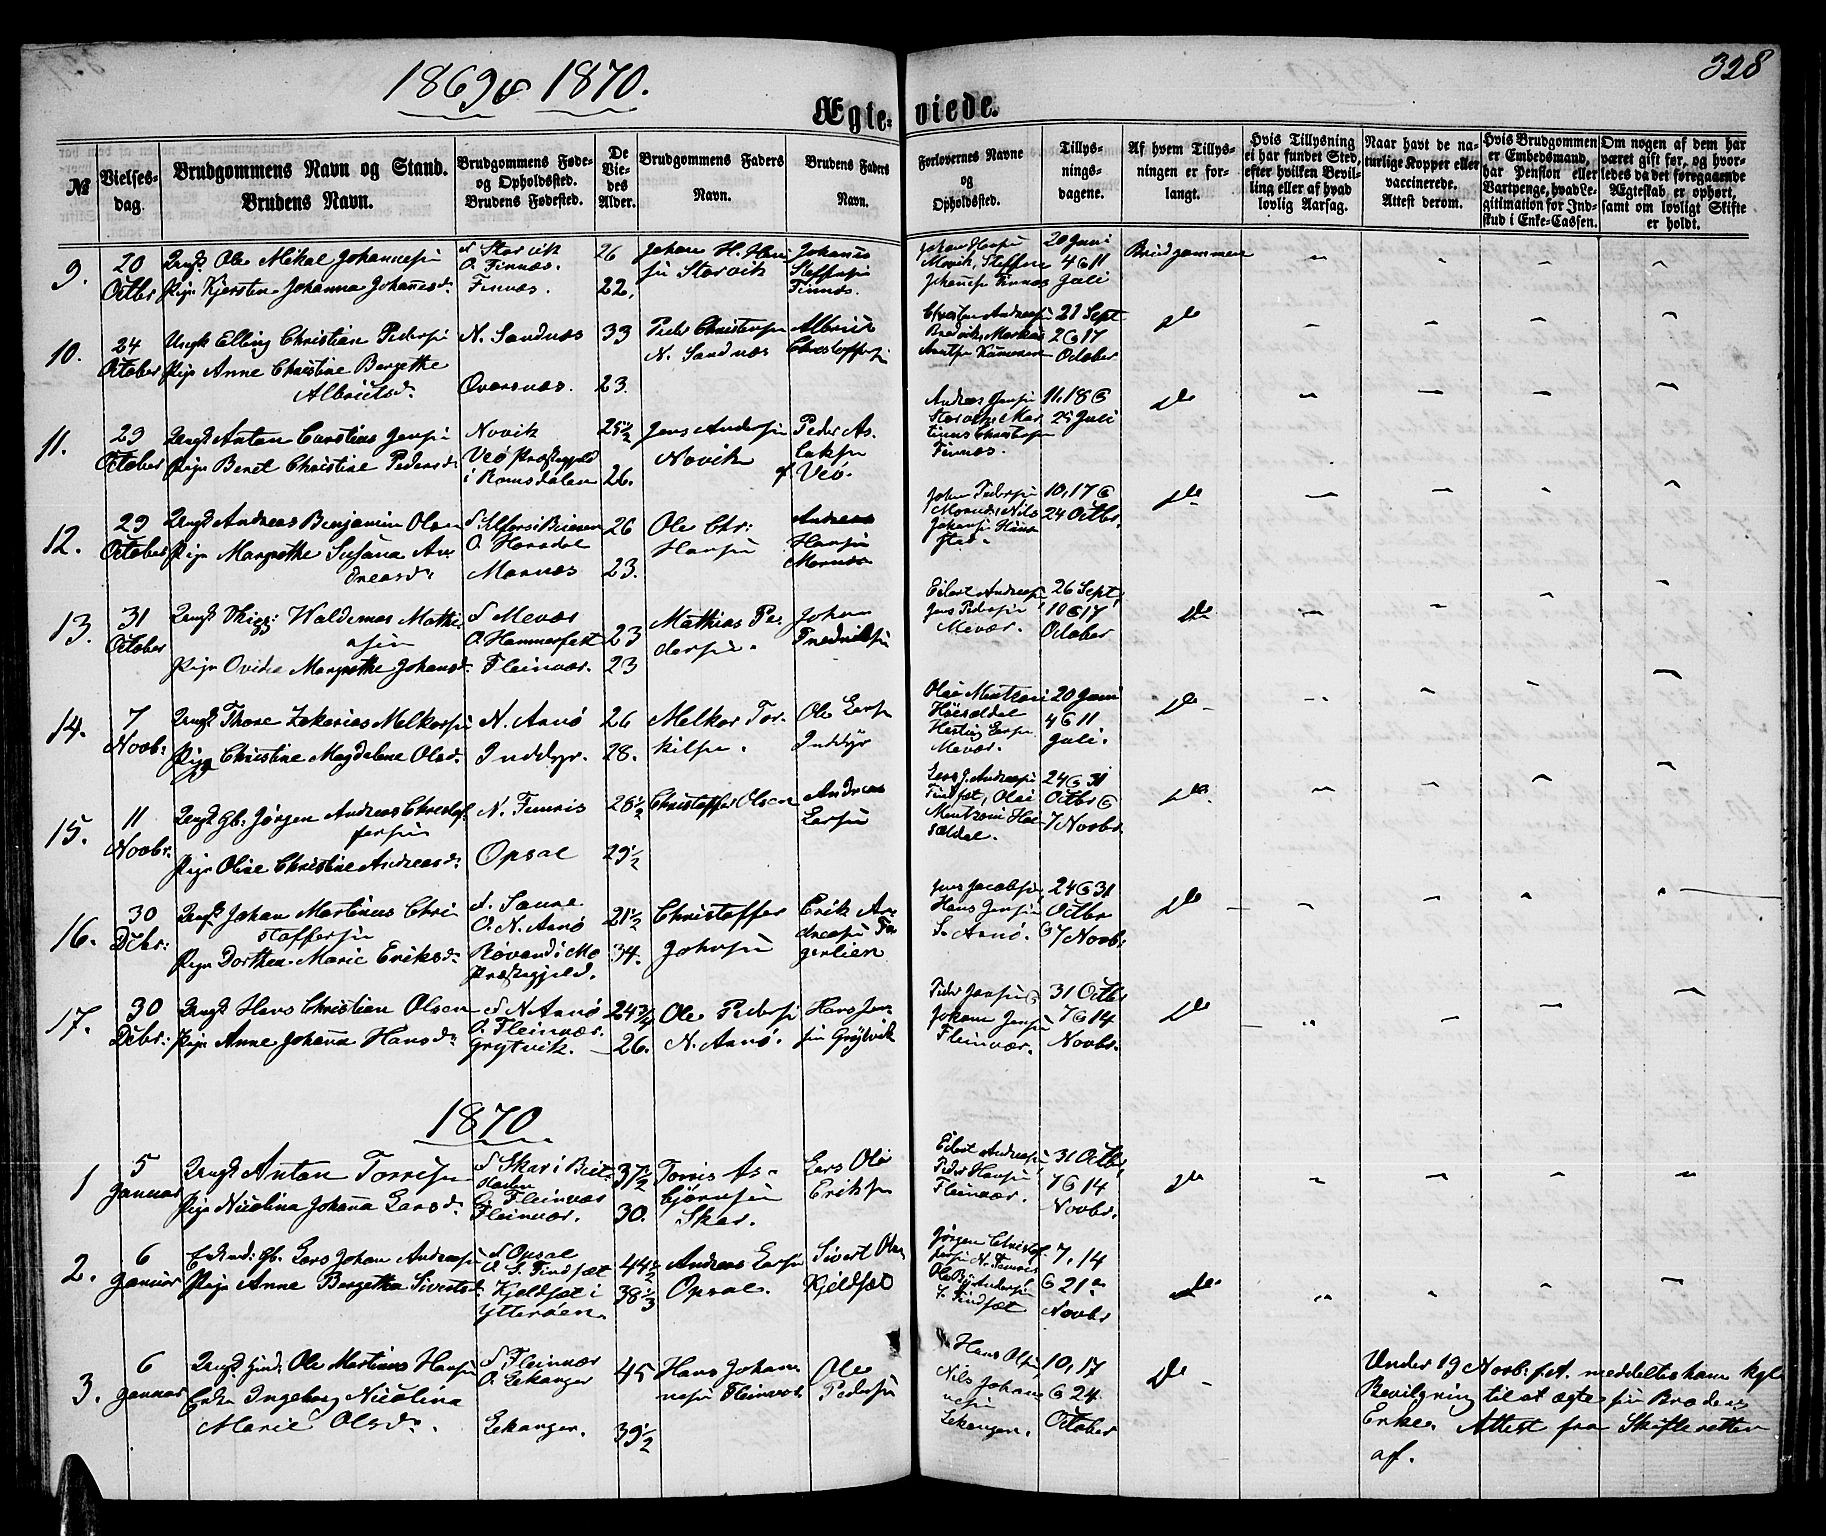 1869 & 1870.
328
Ægte- viede.
№
Vielses-
dag.
Brudgommens Navn og Stand.
Brudens Navn.
Brudgommens Føde-
og Opholdssted.
Brudens Fødested.
De
Vie-
des
Alder.
Brudgommens Faders
Navn.
Brudens Faders
Navn.
Forlovernes Navne
og
Opholdssted.
Tillys-
nings-
dagene.
Af hvem Tillys-
ningen er for-
langt.
Hvis Tillysning
ei har fundet Sted,
efter hvilken Bevil-
ling eller af hvad
lovlig Aarsag.
Naar havt de na-
turlige Kopper eller
vaccinerede.
Attest derom.
Hvis Brudgommen
er Embedsmand,
har Pension eller
Vartpenge, hvad Le-
gitimation for Ind-
skud i Enke-Cassen.
Om nogen af dem har
været gift før, og hvor-
ledes da det foregaaende
Ægteskab er ophørt,
samt om lovligt Skifte
er holdt.
9.
20
Octbr
Ungk. Ole Mikal Johannessen
Pige Kjersten Johanna Johannesd.
f. Storvik
O. Finnæs.
Finnæs.
26
22.
Johan H. Han
sen Storvik
Johannes
Steffensen
Finnæs.
Johan Hansen
Movik, Steffen
Johansen Finnæs
20 Juni
4 & 11
Juli
Brudgommen
10.
24
October
Ungk Elling Christian Pedersen
Pige Anne Christine Bergethe
Albrictsd.
N. Sandnæs
Oversnæs.
33
23.
Peder Christensen
N. Sandnæs
Albrict
Christoffersen
Andreasen
Bredvik, Markus
21 Sept
26 17
October
do
11.
29
October
Ungk Anton Carstins Jensen
Pige Beret Christine Pedersd.
Novik
Veø Præstegjeld
i Romsdalen
25½
26.
Jens Andersen
Novik
Peder As-
laksen
af Veø.
Andreas Jensen
Storvik, Mar
tinus Christophersen
Finnæs.
11, 18 &
25 Juli
do
12.
29
October
Ungk Andreas Benjamin Olsen
Pige Margrethe Susanna An
dreasd.
O. Horsdal
Mornæs
26
23.
Ole Chr.
Hansen
Andreas
Hansen
Mornæs
John Pedersen
Mornæs, Nils
Johansen
10, 17 &
24 Octbr.
do
13.
31
October
Ungk Waldemar Mathi
asen
Pige Ovidia Margrethe Johansd.
f. Mevær
O. Hammerfest
Fleinvær.
23
23
Mathias Pe
dersen.
Johan
Fredriksen
Eilert Andreasen
Jens Pedersen
Mevær.
26 Sept
10 & 17
October
do
14.
7
Novbr:
Ungk Thore Zakarias Melkersen
Pige Christine Magdalene Olsd.
N. Arnø
Inddyr.
26
28.
Melker Tor-
kilsen.
Ole Larsen
Inddyr
Olai Mentzoni
Høisældal
Hertvig Larsen
Mevær.
20 Juni
4 & 11
Juli.
do
15.
11
Novbr:
Ungk Gb: Jørgen Andreas Christof
fersen
Pige Oline Christine Andreasd.
N. Fumris
Opsal
28½
29½
Christoffer Olsen
Andreas
Larsen
Lars J. Andreasen
Findsæt, Olai
Mentzoni Høi-
sældal.
24 & 31
Octbr &
7 Novbr.
do.
16.
30
Dcbr:
Ungk Johan Martinus Chri
stoffersen
Pige Dorthea Marie Eriksd.
f. Saura
O. N. Arnø
Røvand i Mo
Præstegjeld.
21½
34.
Christoffer
Johnsen
Erik An-
dreasen Fa-
gerlien
Jens Jacobsen
Hans Jensen
S. Arnø.
24 & 31
Octbr
& 7 Novbr:
do
17.
30
Dcbr:
Ungk Hans Christian Olsen
Pige Anne Johanna Hansd.
f. N. Arnø
O. Fleinvær.
Grytvik.
24¾
26.
Ole Pedersen
N. Arnø.
Hans Jen-
sen Grytvik
Peder Jensen &
Johan Jensen
Fleinvær.
31 Octbr
7 & 14
Novbr.
do
1870
1
5
Januar
Ungk Anton Torrisen
Pige Nicolina Johanna Larsd.
f. Skar i Beit-
staden
O. Fleinvær
Fleinvær.
37½
30.
Torris As-
bjørnsen
Skar.
Lars Ole
Eriksen
Eilert Andreasen
Peder Hansen
Fleinvær.
31 Octbr,
7 & 14
Novbr.
do
2.
6
Januar
Enkmd: Gb. Lars Johan Andreasen
Pige Anne Bergetha Sivertsd.
f. Opsal
O. S. Findsæt
Kjeldsæt i
Ytterøen
44½
38⅓
Andreas Larsen
Opsal.
Sivert Olsen
Kjeldsæt
Jørgen Christof-
fersen N. Fumris
S. Findsæt
7, 14
& 21.
Novbr
do
3.
6
Januar
Ungk Ind: Ole Martinus Hansen
Enke Ingeborg Nicolina
Marie Olsd.
f. Fleinvær
O. Lekanger
Lekanger.
45
39½
Hans Johan
nesen Fleinvær
Ole
Pedersen
Hans Olsen
Nils Johan
nesen
Lekanger.
10, 17
& 24
October
Do
Under 19 Novbr. f. A. meddeltes ham kgl
Bevilgning til at ægte sin Broders
Enke. Attest fra Skifteretten
af.